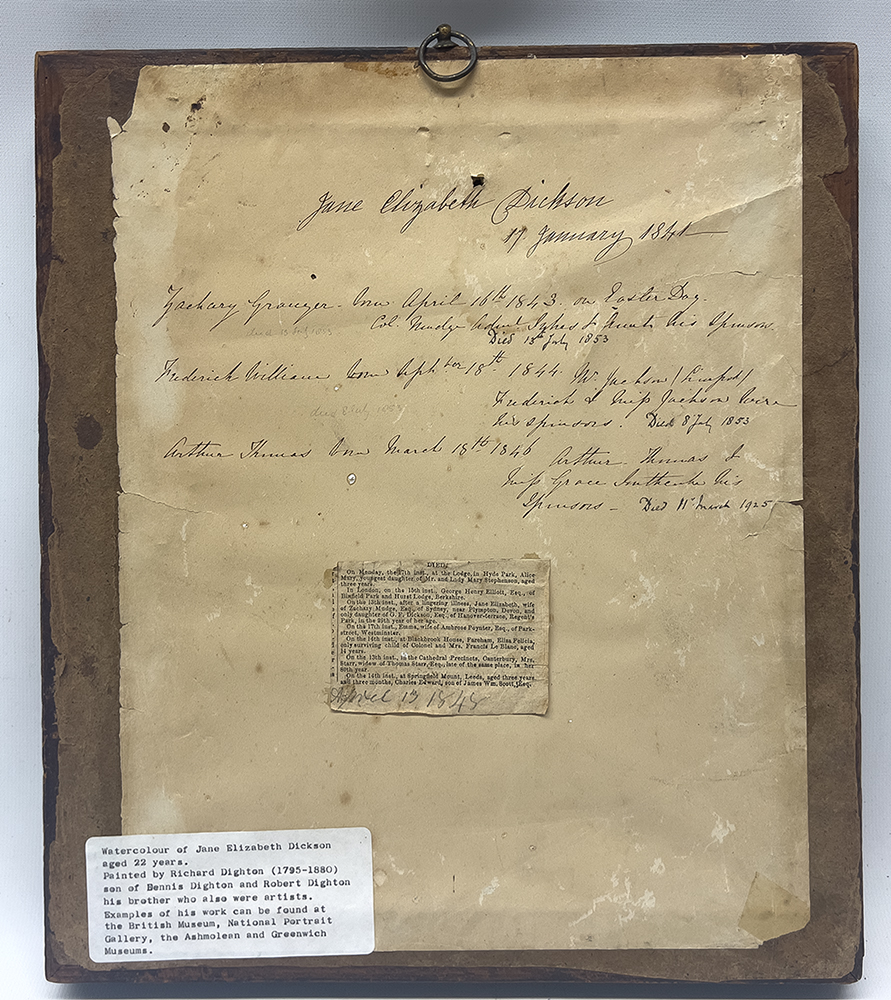 Jane Elizabeth Dickson
17 January 1841
Zachary Granger - born April 16th 1843. on Easter Day.
Col. Mudge Sykes & Aunt his Sponsors.
Died 13th July 1853
Frederick William born Sepber 18th 1844. Mr Jackson
Frederick & Miss Jackson were
his sponsors. Died 8 July 1853
Arthur Thomas born March 18th 1846
Arthur Thomas &
Miss Grace his
Sponsors - Died 11th March 1925
DIED.
On Monday, the 17th inst., at the Lodge, in Hyde Park, Alice
Mary, youngest daughter of Mr. and Lady Mary Stephenson, aged
three years.
In London, on the 15th inst., George Henry Elliott, Esq., of
Binfield Park and Hurst Lodge, Berkshire.
On the 13th inst., after a lingering illness, Jane Elizabeth, wife
of Zachary Mudge, Esq., of Sydney, near Plympton, Devon, and
only daughter of O. F. Dickson, Esq., of Hanover-terrace, Regent's
Park, in the 29th year of her age.
On the 17th inst., Emma, wife of Ambrose Poynter, Esq., of Park-
street, Westminster.
On the 14th inst., at Blackbrook House, Fareham, Eliza Felicia,
only surviving child of Colonel and Mrs. Francis Le Blanc, aged
14 years.
On the 13th inst., in the Cathedral Precincts, Canterbury, Mrs.
Starr, widow of Thomas Starr, Esq., late of the same place, in her
80th year.
On the 14th inst., at Springfield Mount, Leeds, aged three years
and three months, Charles Edward, son of James Wm. Scott, Esq.
April 13 1848
Watercolour of Jane Elizabeth Dickson
aged 22 years.
Painted by Richard Dighton (1795-1880)
son of Dennis Dighton and Robert Dighton
his brother who also were artists.
Examples of his work can be found at
the British Museum, National Portrait
Gallery, the Ashmolean and Greenwich
Museums.